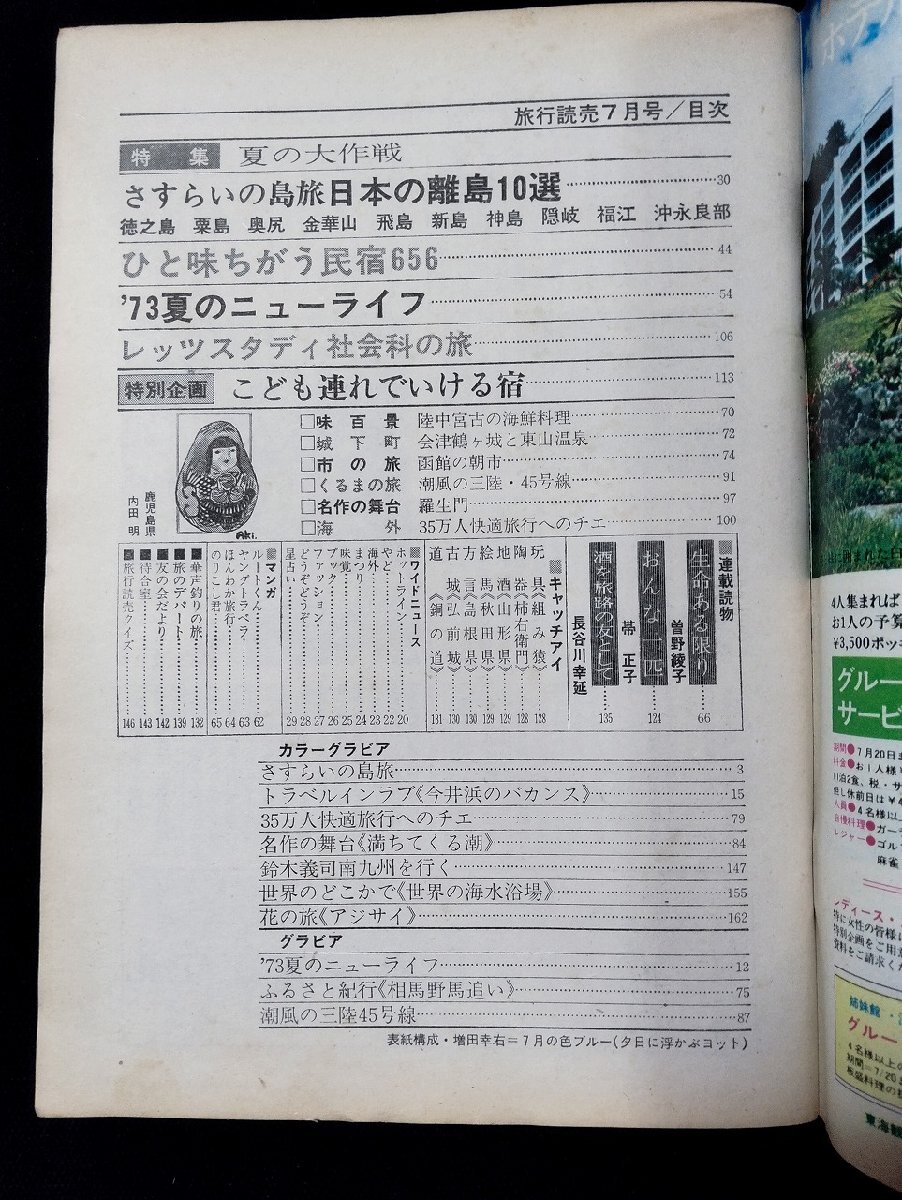 旅行読売7月号／目次
特集 夏の大作戦
さすらいの島旅日本の離島10選……30
徳之島 粟島 奥尻 金華山 飛島 新島 神島 隠岐 福江 沖永良部
ひと味ちがう民宿656……44
'73夏のニューライフ……54
レッツスタディ社会科の旅……106
特別企画 こども連れでいける宿……113
□味百景 陸中宮古の海鮮料理……70
□城下町 会津鶴ヶ城と東山温泉……72
□市の旅 函館の朝市……74
□くるまの旅 潮風の三陸・45号線……91
□名作の舞台 羅生門……97
□海外 35万人快適旅行へのチエ……100
鹿児島県
内田 明
Aki.
■連載読物
生命ある限り 曽野綾子……66
おんな一匹 帯 正子……124
酒を旅路の友として 長谷川幸延……135
■キャッチアイ
玩具《組み猿》……128
陶器《柿右衛門》……128
地酒《山形県》……129
絵馬《秋田県》……129
方言《島根県》……130
古城《弘前城》……130
道《銅の道》……131
■ワイドニュース
ホットライン……20
やど……22
海外……23
まつり……24
味覚……25
ブック……26
ファッション……27
どうぞどうぞ……28
星占い……29
■マンガ
ルートくん……62
ヤングトラベラ……63
ほんわか旅行……64
のりこし君……65
■華声釣りの旅……132
■旅のデパート……139
■友の会だより……142
■待合室……143
■旅行読売クイズ……146
カラーグラビア
さすらいの島旅……3
トラベルインラブ《今井浜のバカンス》……15
35万人快適旅行へのチエ……79
名作の舞台《満ちてくる潮》……84
鈴木義司南九州を行く……147
世界のどこかで《世界の海水浴場》……155
花の旅《アジサイ》……162
グラビア
'73夏のニューライフ……12
ふるさと紀行《相馬野馬追い》……75
潮風の三陸45号線……87
表紙構成・増田幸右＝7月の色ブルー(夕日に浮かぶヨット)
ホテル
4人集まれば
お1人の予算
¥3,500ポッキ
グルー
サービ
期間●7月20日ま
料金●お1人様
1泊2食、税・サ
但し休前日は¥4
人員●4名様以上
自慢料理●ガー
レジャー●ゴル
麻雀
レディース・
特に女性の皆様に
特別企画をご用意
資料をご請求くだ
姉妹館・
グルー
4名様以上の
期間＝7/20ま
東海観